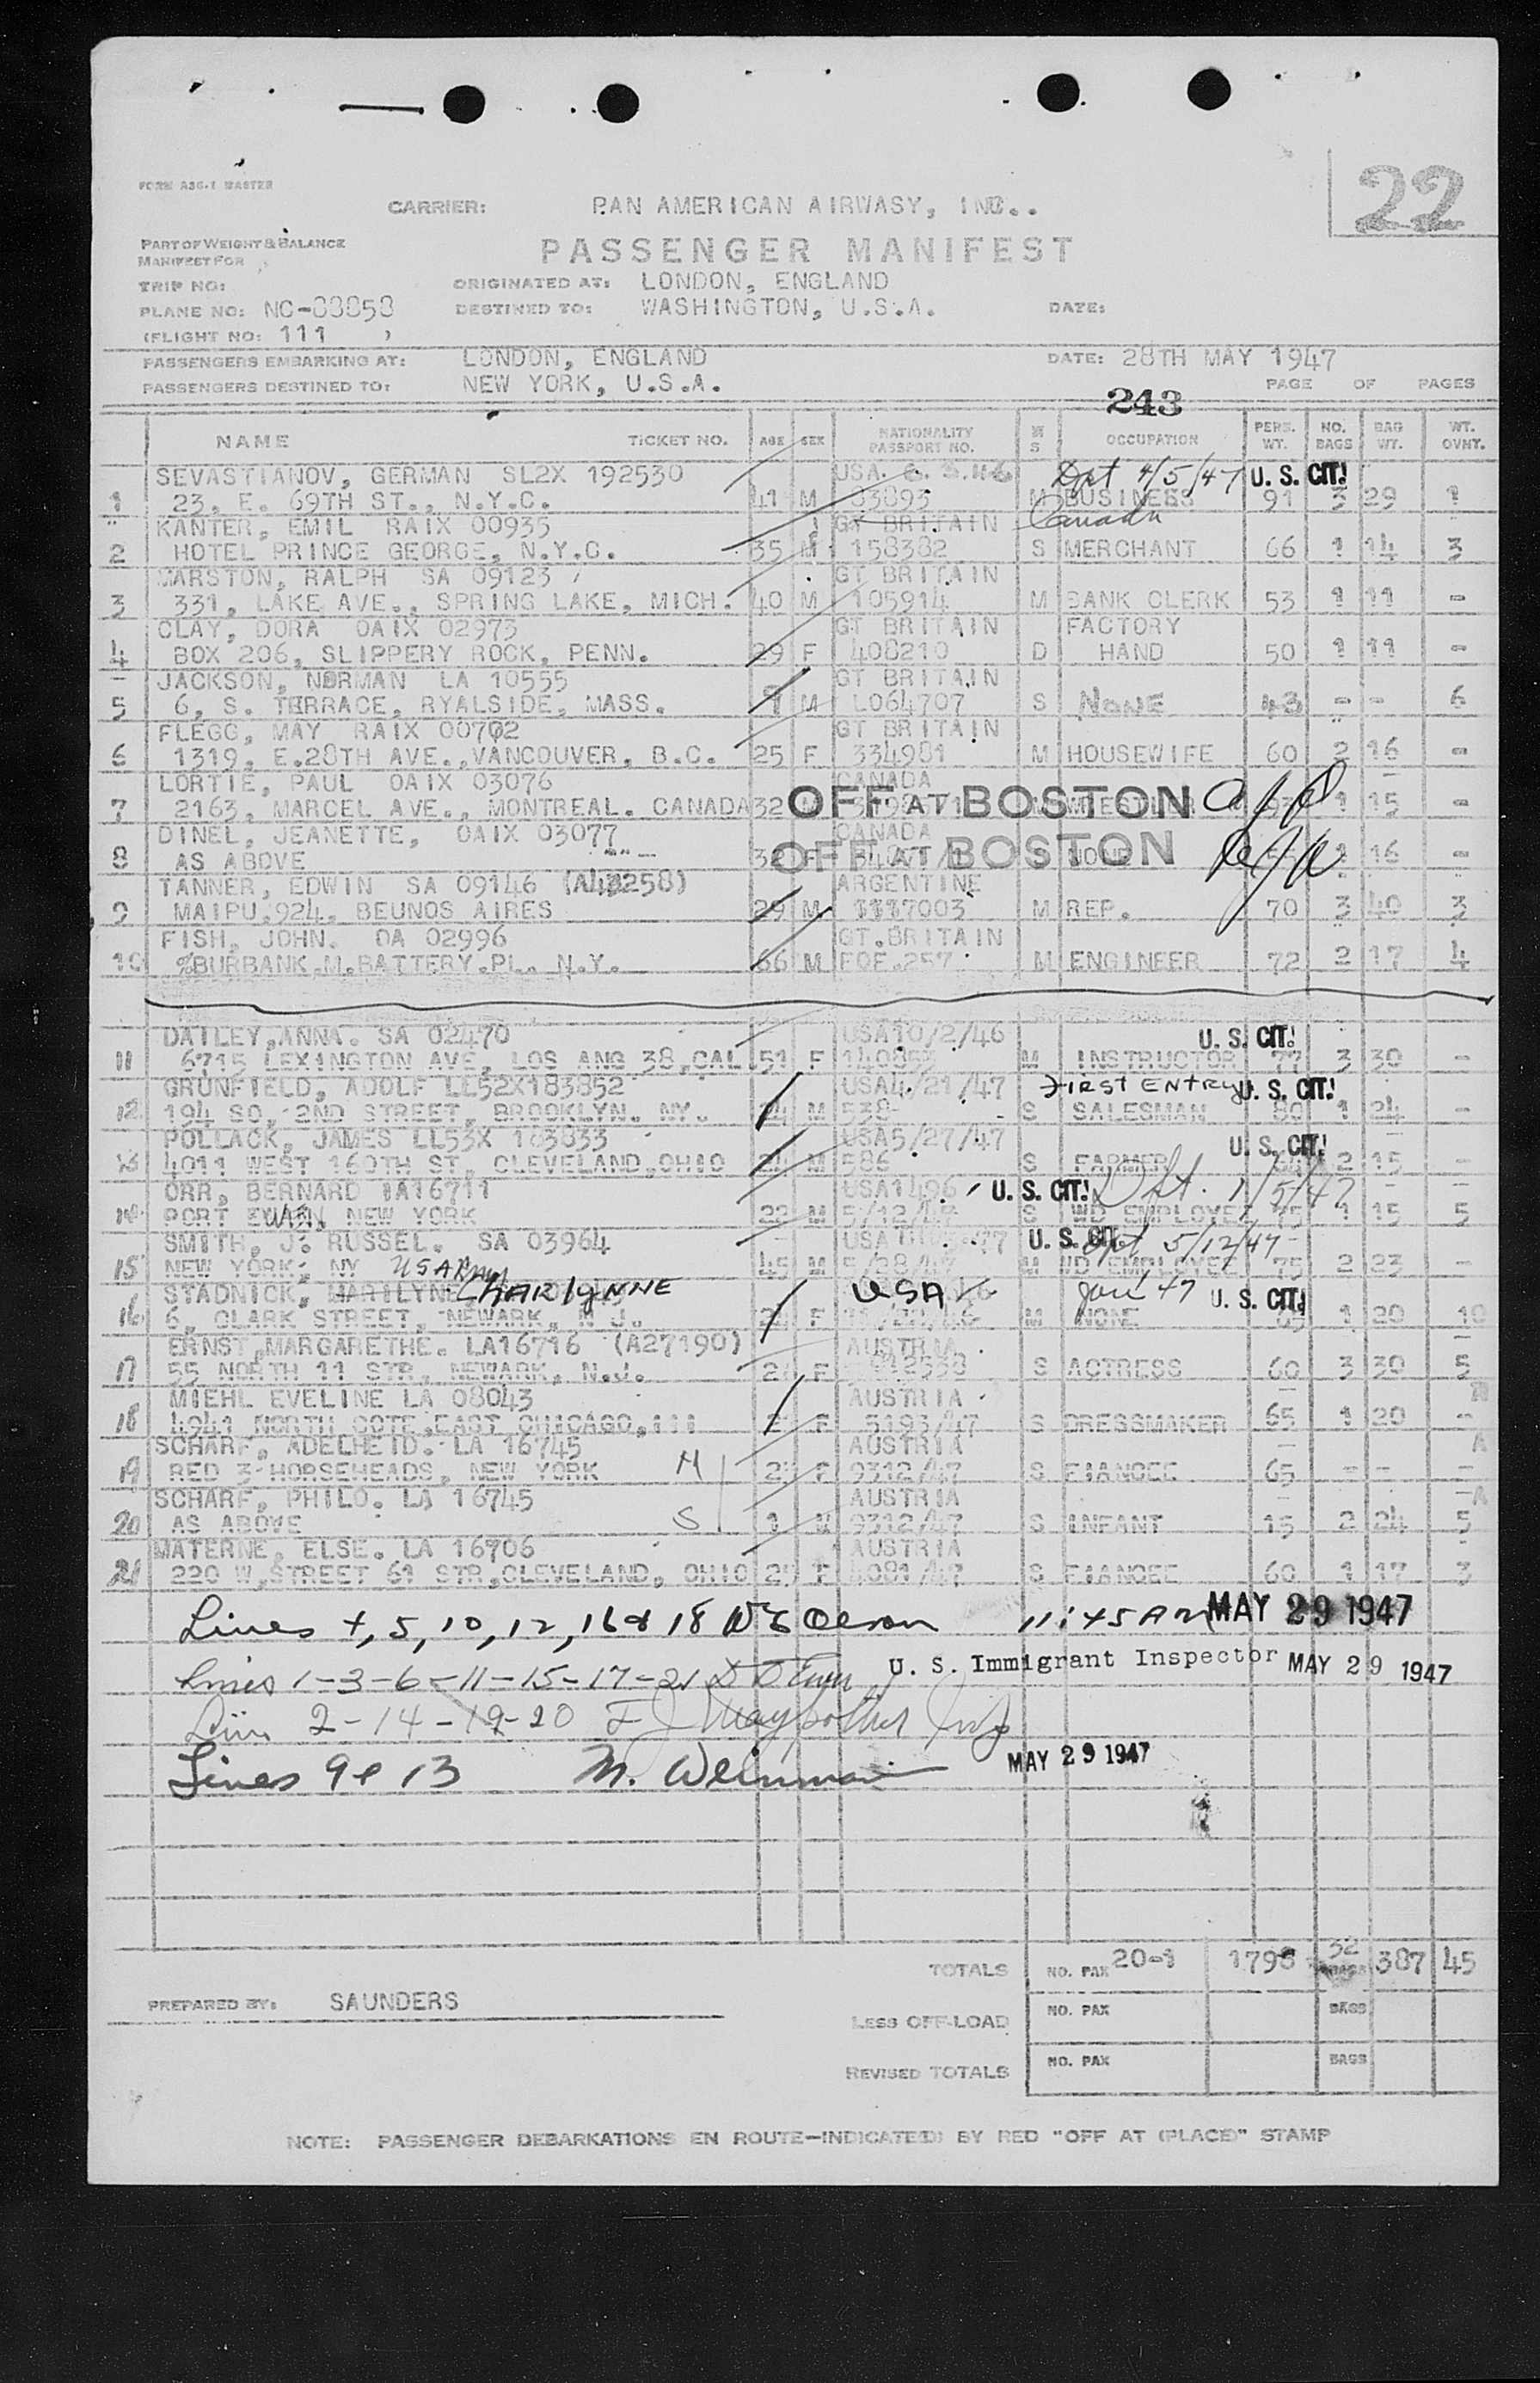 FORM ASG-1 MASTER
22
CARRIER: PAN AMERICAN AIRWASY, INC..
PART OF WEIGHT & BALANCE
MANIFEST FOR
PASSENGER MANIFEST
TRIP NO:
ORIGINATED AT: LONDON, ENGLAND
PLANE NO: NC-88858
DESTINED TO: WASHINGTON, U.S.A.
DATE:
(FLIGHT NO: 111 )
PASSENGERS EMBARKING AT: LONDON, ENGLAND
DATE: 28TH MAY 1947
PASSENGERS DESTINED TO: NEW YORK, U.S.A.
PAGE OF PAGES
243
NAME TICKET NO. AGE SEX NATIONALITY PASSPORT NO. M S OCCUPATION PERS. WT. NO. BAGS BAG WT. WT. OVNT.
SEVASTIANOV, GERMAN SL2X 192530 USA. Dpt 4/5/47 U. S. CIT!
1 23, E. 69TH ST., N.Y.C. 41 M 83893 M BUSINESS 91 3 29 1
KANTER, EMIL RAIX 00935 GT BRITAIN Canada
2 HOTEL PRINCE GEORGE, N.Y.C. 35 M 158382 S MERCHANT 66 1 14 3
MARSTON, RALPH SA 09123 GT BRITAIN
3 331, LAKE AVE., SPRING LAKE, MICH. 40 M 105914 M BANK CLERK 53 1 11 -
CLAY, DORA OAIX 02973 GT BRITAIN FACTORY
4 BOX 206, SLIPPERY ROCK, PENN. 29 F 408210 D HAND 50 1 11 -
JACKSON, NORMAN LA 10555 GT BRITAIN
5 6, S. TERRACE, RYALSIDE, MASS. 9 M L064707 S NONE 43 - - 6
FLEGG, MAY RAIX 00702 GT BRITAIN
6 1319, E.28TH AVE.,VANCOUVER, B.C. 25 F 334981 M HOUSEWIFE 60 2 16 -
LORTIE, PAUL OAIX 03076 CANADA
7 2163, MARCEL AVE., MONTREAL. CANADA 32 OFF AT BOSTON 1 15 -
DINEL, JEANETTE, OAIX 03077 CANADA
8 AS ABOVE 32 F OFF AT BOSTON 1 16 -
TANNER, EDWIN SA 09146 (A43258) ARGENTINE
9 MAIPU.924. BEUNOS AIRES 29 M 1117003 M REP. 70 3 40 3
FISH, JOHN. OA 02996 GT.BRITAIN
10 %BURBANK.M.BATTERY.PL. N.Y. 66 M FOF.257 M ENGINEER 72 2 17 4
DAILEY,ANNA. SA 02470 USA10/2/46 U. S. CIT!
11 6715 LEXINGTON AVE, LOS ANG 38,CAL 51 F 140853 M INSTRUCTOR 77 3 30 -
GRUNFIELD, ADOLF LL52X183852 USA4/21/47 FIRST ENTRY U. S. CIT!
12 194 SO, 2ND STREET, BROOKLYN. NY. 24 M 538- S SALESMAN 80 1 24 -
POLLACK, JAMES LL53X 183833 USA5/27/47 U. S. CIT!
13 4011 WEST 160TH ST, CLEVELAND,OHIO 24 M 586 S FARMER 2 15 -
ORR, BERNARD LA16711 USA1496 U. S. CIT! Dpt. 1/5/47
14 PORT EWEN, NEW YORK 22 M 5/12/47 S WD EMPLOYEE 75 1 15 5
SMITH, J. RUSSEL. SA 03964 USA U. S. CIT! Dpt 5/12/47
15 NEW YORK, NY USARMY 45 M 5/28/47 M WD EMPLOYEE 75 2 23 -
STADNICK, MARILYNE CHARLYNNE USA Jan 47 U. S. CIT!
16 6, CLARK STREET, NEWARK, N J. F M NONE 1 20 10
ERNST,MARGARETHE. LA16716 (A27190) AUSTRIA
17 55 NORTH 11 STR, NEWARK, N.J. F S ACTRESS 60 3 39 5
MIEHL EVELINE LA 08043 AUSTRIA
18 4941 NORTH COTE,EAST CHICAGO,Ill F 5193/47 S DRESSMAKER 65 1 20 -
SCHARF, ADELHEID. LA 16745 M AUSTRIA
19 RED 3 HORSEHEADS, NEW YORK F 9312/47 S FIANCEE 65 - - -
SCHARF, PHILO. LA 16745 AUSTRIA
20 AS ABOVE S 1 M 9312/47 S INFANT 15 2 24 5
MATERNE, ELSE. LA 16706 AUSTRIA
21 220 W,STREET 61 STR,CLEVELAND, OHIO F 4081/47 S FIANCEE 60 1 17 3
Lines 4, 5, 10, 12, 16 & 18 Olson 11:45 AM MAY 29 1947
Lines 1-3-6-11-15-17-21 U. S. Immigrant Inspector MAY 29 1947
Lin 2-14-19-20
Lines 9 & 13 M. Weinman MAY 29 1947
TOTALS NO. PAX 20-1 1798 32 387 45
PREPARED BY: SAUNDERS
LESS OFF-LOAD NO. PAX BAGS
REVISED TOTALS NO. PAX BAGS
NOTE: PASSENGER DEBARKATIONS EN ROUTE—INDICATED BY RED "OFF AT (PLACE)" STAMP